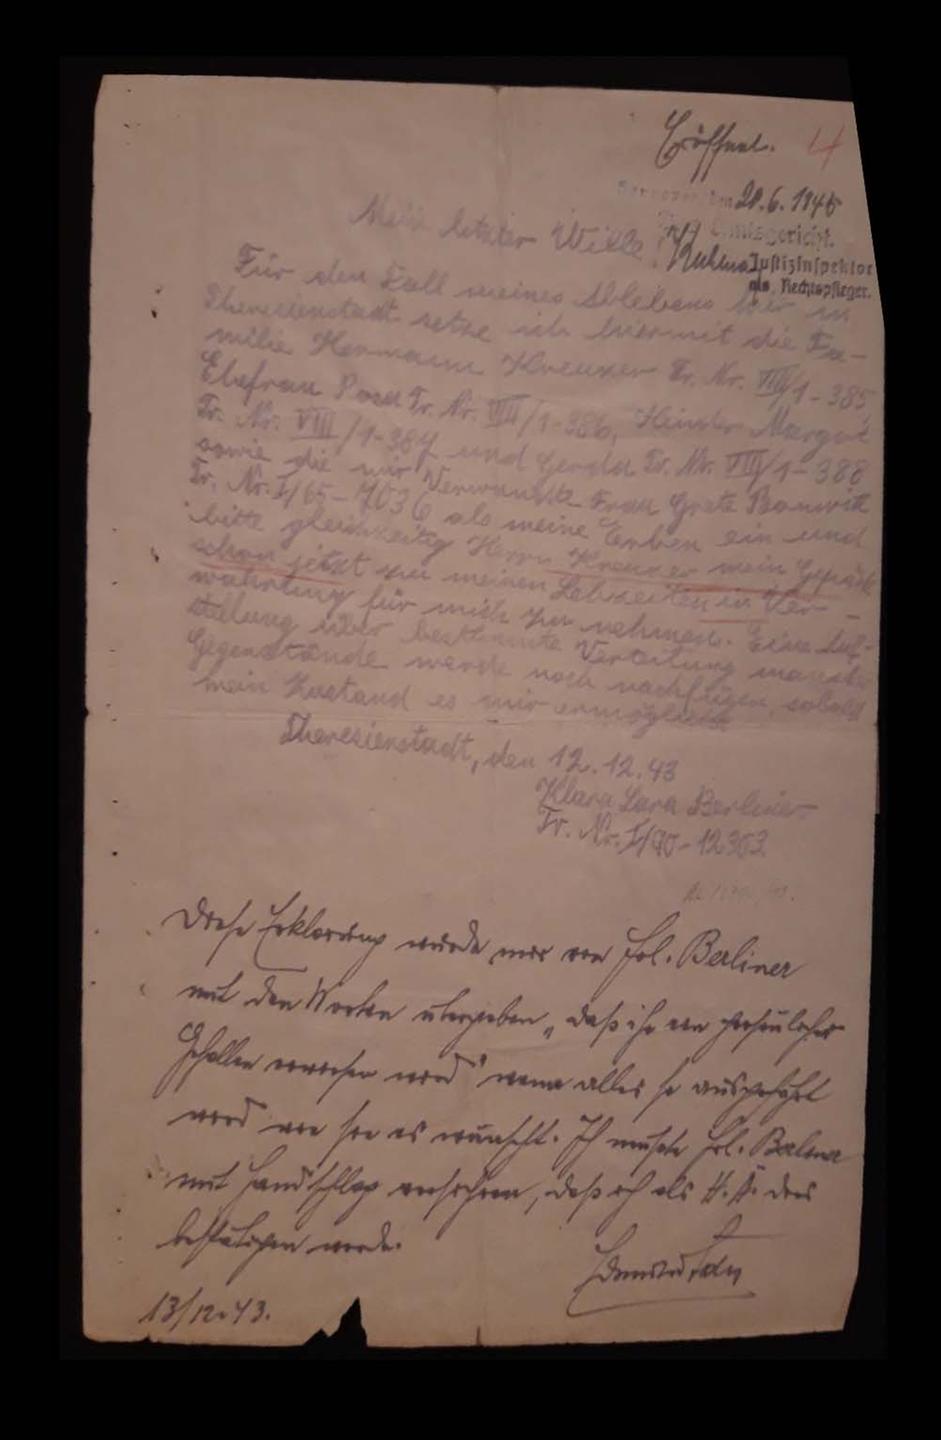 Eröffnet. 4
Hannover, den 28.6.1946
Amtsgericht.
Justizinspektor
als Rechtspfleger.
Mein letzter Wille!
Für den Fall meines Ablebens hier in
Theresienstadt setze ich hiermit die Fa-
milie Hermann Kreuxer Tr. Nr. VIII/1-385
Ehefrau Rosa Tr. Nr. VIII/1-386, Kinder Margot
Tr. Nr. VIII/1-387 und Gerda Tr. Nr. VIII/1-388
sowie die mir Verwandte Frau Grete
Tr. Nr. I/65-7036 als meine Erben ein und
bitte gleichzeitig Herrn Kreuxer mein Gepäck
schon jetzt zu meinen Lebzeiten in Ver-
wahrung für mich zu nehmen. Eine Auf-
stellung über bestimmte Verteilung mancher
Gegenstände werde noch nachfügen, sobald
mein Zustand es mir ermöglicht.
Theresienstadt, den 12.12.43
Klara Sara Berliner
Tr. Nr. I/90-12303
Diese Erklärung wurde mir von Frl. Berliner
mit den Worten übergeben „daß ihr ein persönlicher
Gefallen erwiesen wird" wenn alles so ausgeführt
wird wie sie es wünscht. Ich musste Frl. Berliner
mit Handschlag versichern, daß ich als H.Ä. dies
bestätigen werde.
13/12.43.